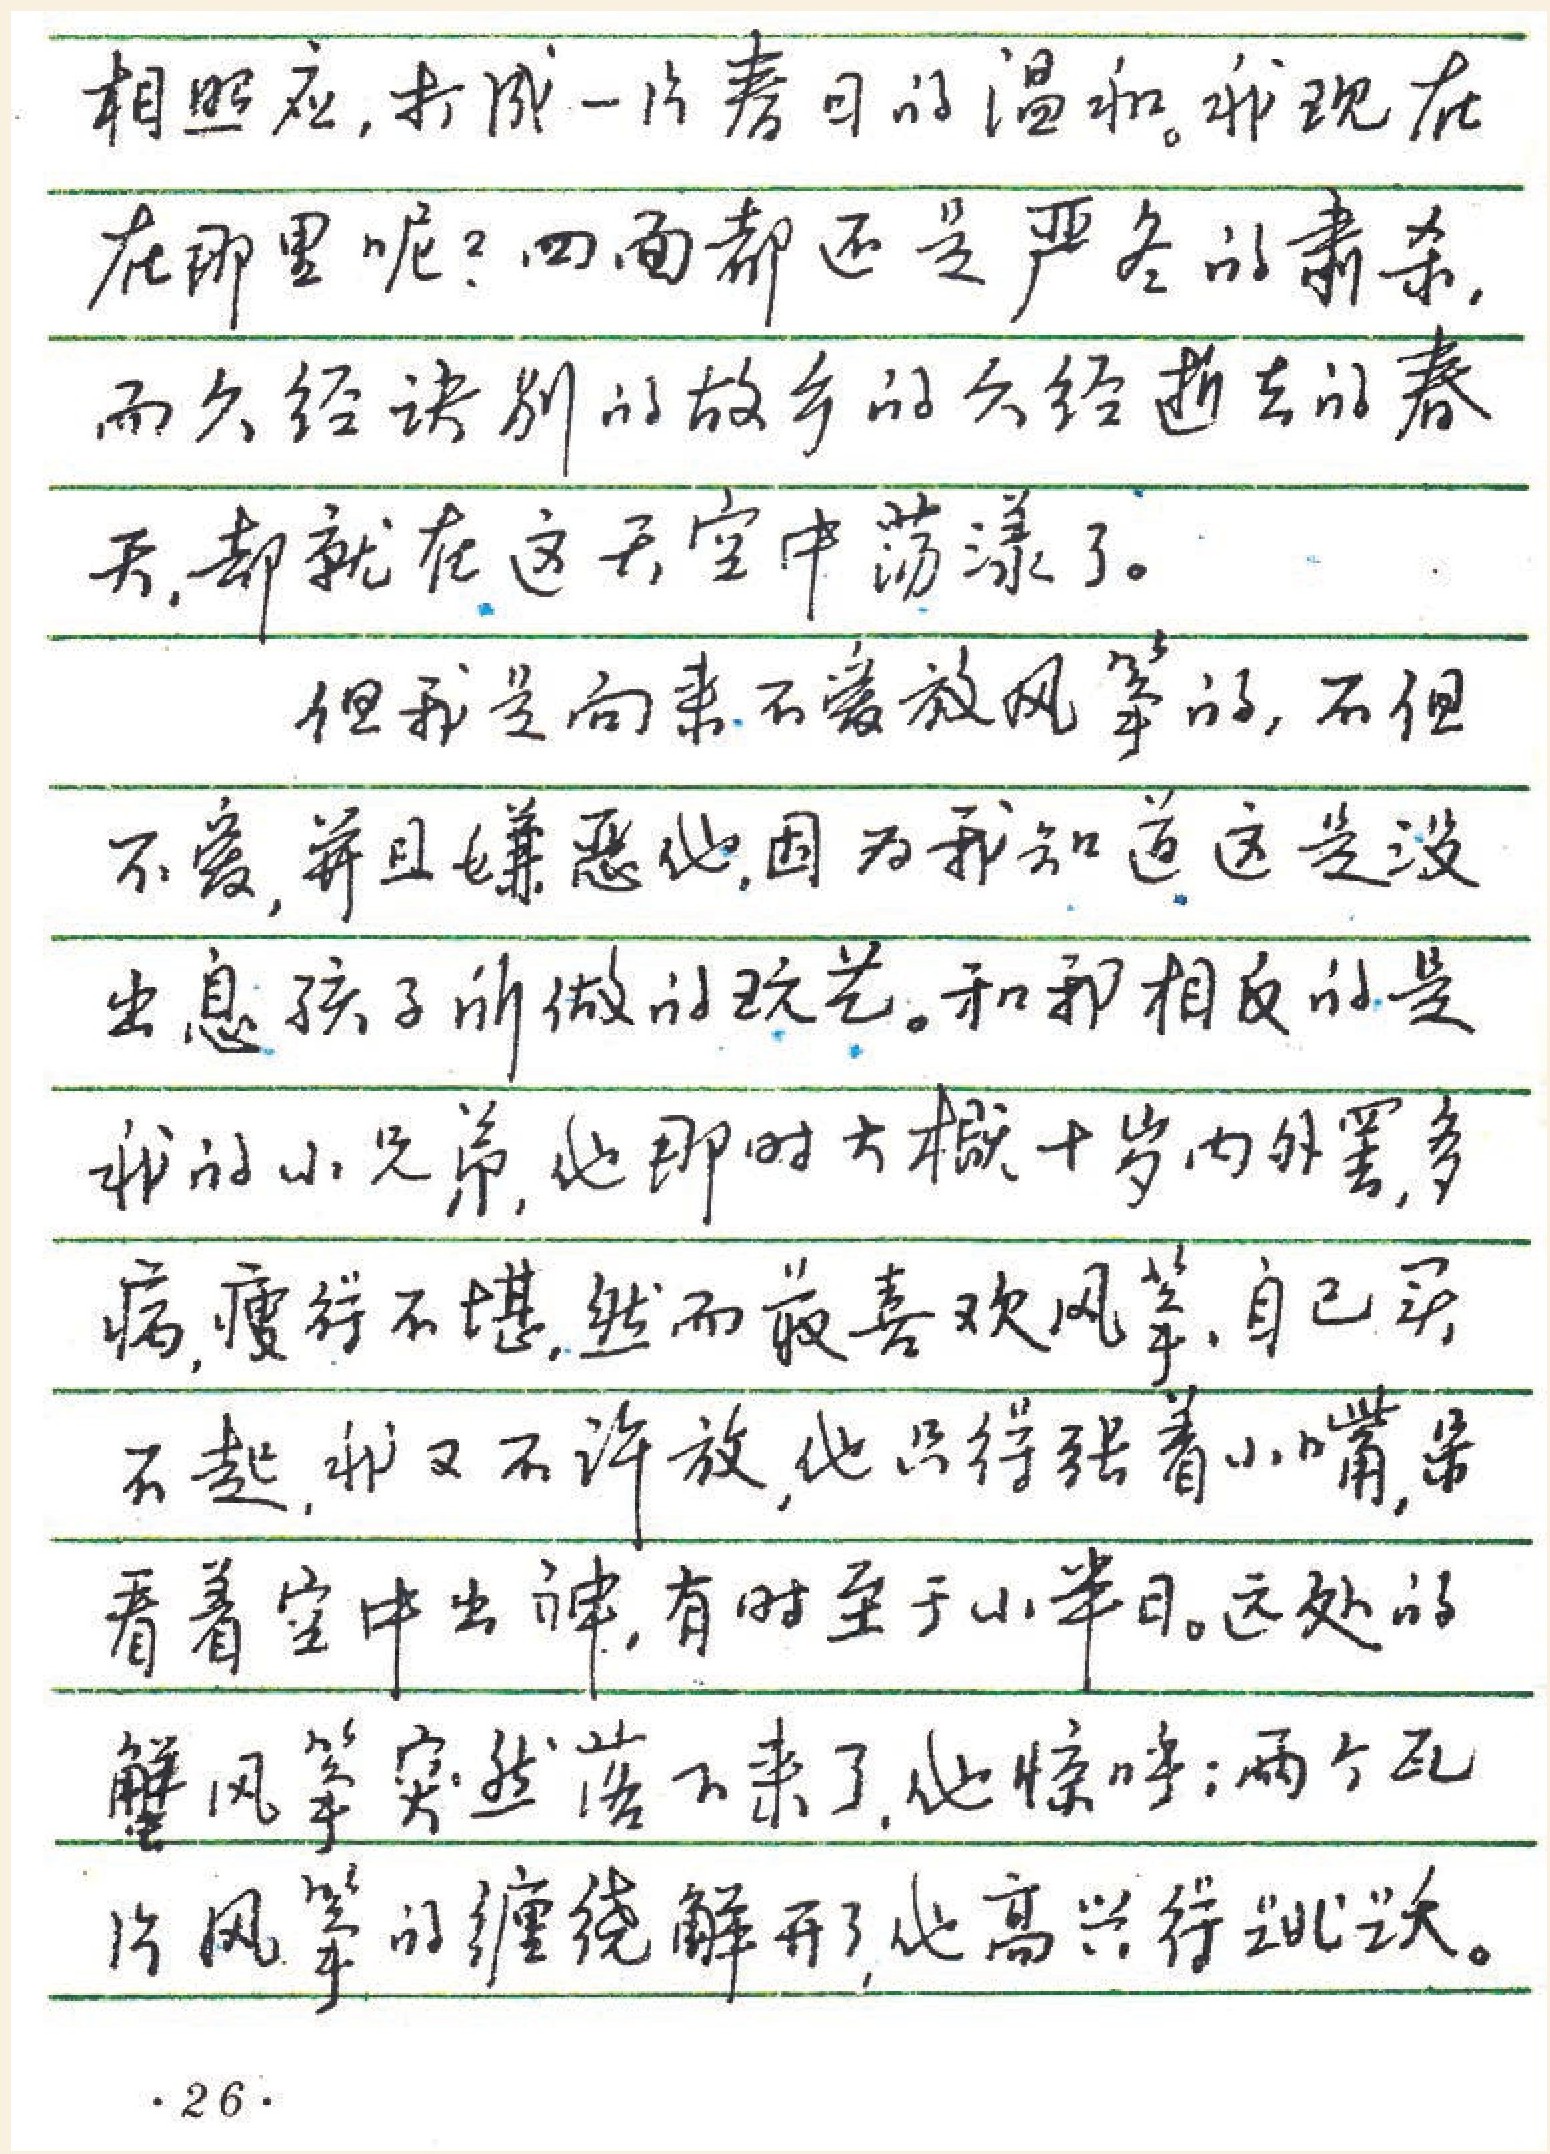 相照应,打成一片春日的温和。我现在
在那里呢?四面都还是严冬的肃杀,
而久经诀别的故乡的久经逝去的春
天,却就在这天空中荡漾了。
但我是向来不爱放风筝的,不但
不爱,并且嫌恶他,因为我知道这是没
出息孩子所做的玩艺。和我相反的是
我的小兄弟,他那时大概十岁内外罢,多
病,瘦得不堪,然而最喜欢风筝,自己买
不起,我又不许放,他只得张着小嘴,呆
看着空中出神,有时至于小半日。远处的
蟹风筝突然落下来了,他惊呼;两个瓦
片风筝的缠绕解开了,他高兴得跳跃。
·26·